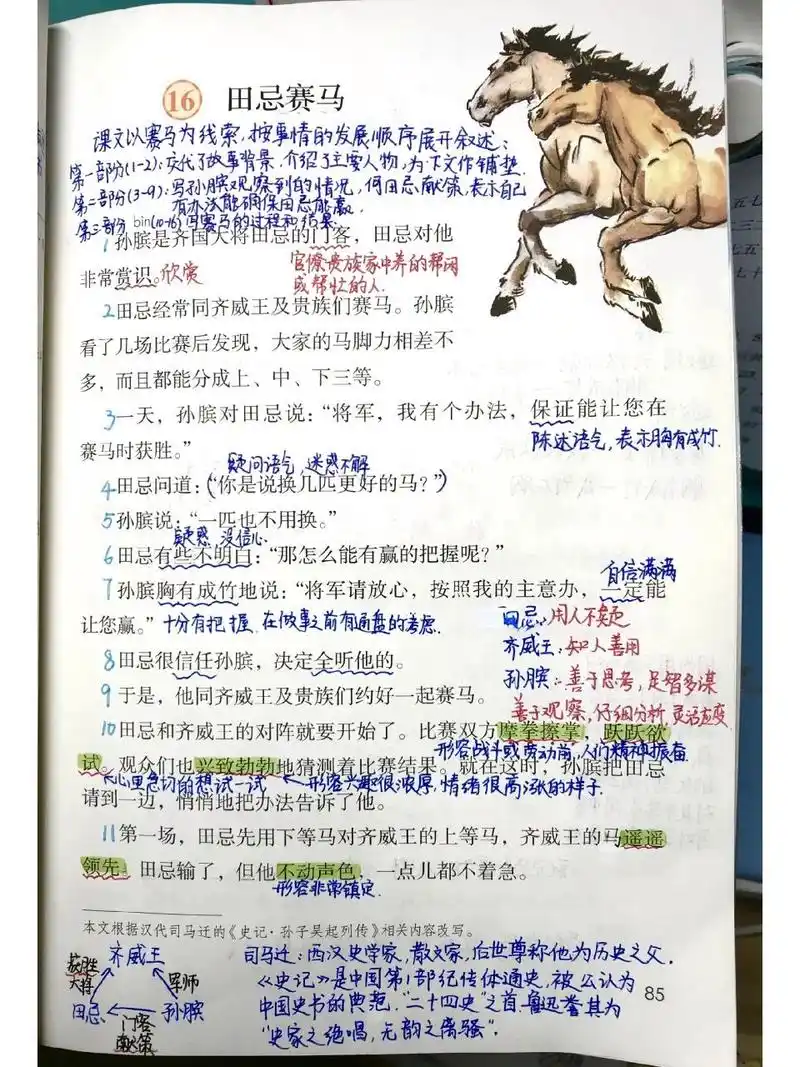 16 田忌赛马
课文以赛马为线索,按事情的发展顺序展开叙述:
第一部分(1-2):交代了故事背景,介绍了主要人物,为下文作铺垫.
第二部分(3-9):写孙膑观察到的情况,向田忌献策,表示自己
有办法能确保田忌能赢.
第三部分bin(10-16)写赛马的过程和结果.
1孙膑是齐国大将田忌的门客,田忌对他
非常赏识。欣赏
官僚贵族家中养的帮闲
或帮忙的人.
2田忌经常同齐威王及贵族们赛马。孙膑
看了几场比赛后发现,大家的马脚力相差不
多,而且都能分成上、中、下三等。
3一天,孙膑对田忌说:“将军,我有个办法,保证能让您在
陈述语气,表示胸有成竹.
赛马时获胜。”
疑问语气,迷惑不解
4田忌问道:(“你是说换几匹更好的马?”)
5孙膑说:“一匹也不用换。”
疑惑 没信心
6田忌有些不明白:“那怎么能有赢的把握呢?”
自信满满
7孙膑胸有成竹地说:“将军请放心,按照我的主意办,一定能
让您赢。”十分有把握.在做事之前有通盘的考虑.
田忌:用人不疑
齐威王:知人善用
8田忌很信任孙膑,决定全听他的。
孙膑:善于思考,足智多谋
9于是,他同齐威王及贵族们约好一起赛马。
善于观察,仔细分析,灵活应变
10田忌和齐威王的对阵就要开始了。比赛双方摩拳擦掌,跃跃欲
形容战斗或劳动前,人们精神振奋.
试。观众们也兴致勃勃地猜测着比赛结果。就在这时,孙膑把田忌
心里急切的想试一试 形容兴趣很浓厚,情绪很高涨的样子.
请到一边,悄悄地把办法告诉了他。
11第一场,田忌先用下等马对齐威王的上等马,齐威王的马遥遥
领先。田忌输了,但他不动声色,一点儿都不着急。
形容非常镇定.
本文根据汉代司马迁的《史记·孙子吴起列传》相关内容改写。
齐威王
获胜
大将
军师
田忌
孙膑
门客
献策
司马迁:西汉史学家,散文家,后世尊称他为历史之父.
《史记》是中国第1部纪传体通史,被公认为
中国史书的典范.“二十四史”之首.鲁迅誉其为
“史家之绝唱,无韵之离骚”.
85